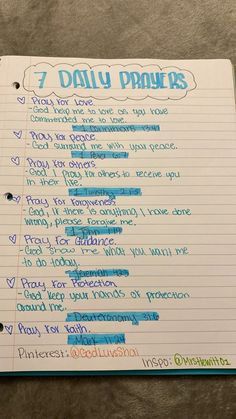 7 DAILY PRAYERS
Pray For Love
-God help me to love as you have
commended me to love.
1 Corinthians 13:4-7
Pray for peace
-God surround me with your peace.
1 Peter 5:7
Pray For others
-God I pray for others to receive you
in their life.
1 Timothy 2:1-2
Pray For Forgiveness
-God, if there is anything I have done
wrong, please forgive me.
1 John 1:9
Pray For Guidance.
-God show me what you want me
to do today.
Jeremiah 42:3
Pray For Protection
-God keep your hands of protection
around me.
Deuteronomy 31:6
Pray for Faith.
Mark 11:24
Pinterest: @GodLuvsShai
Inspo: @MrsHewitt02